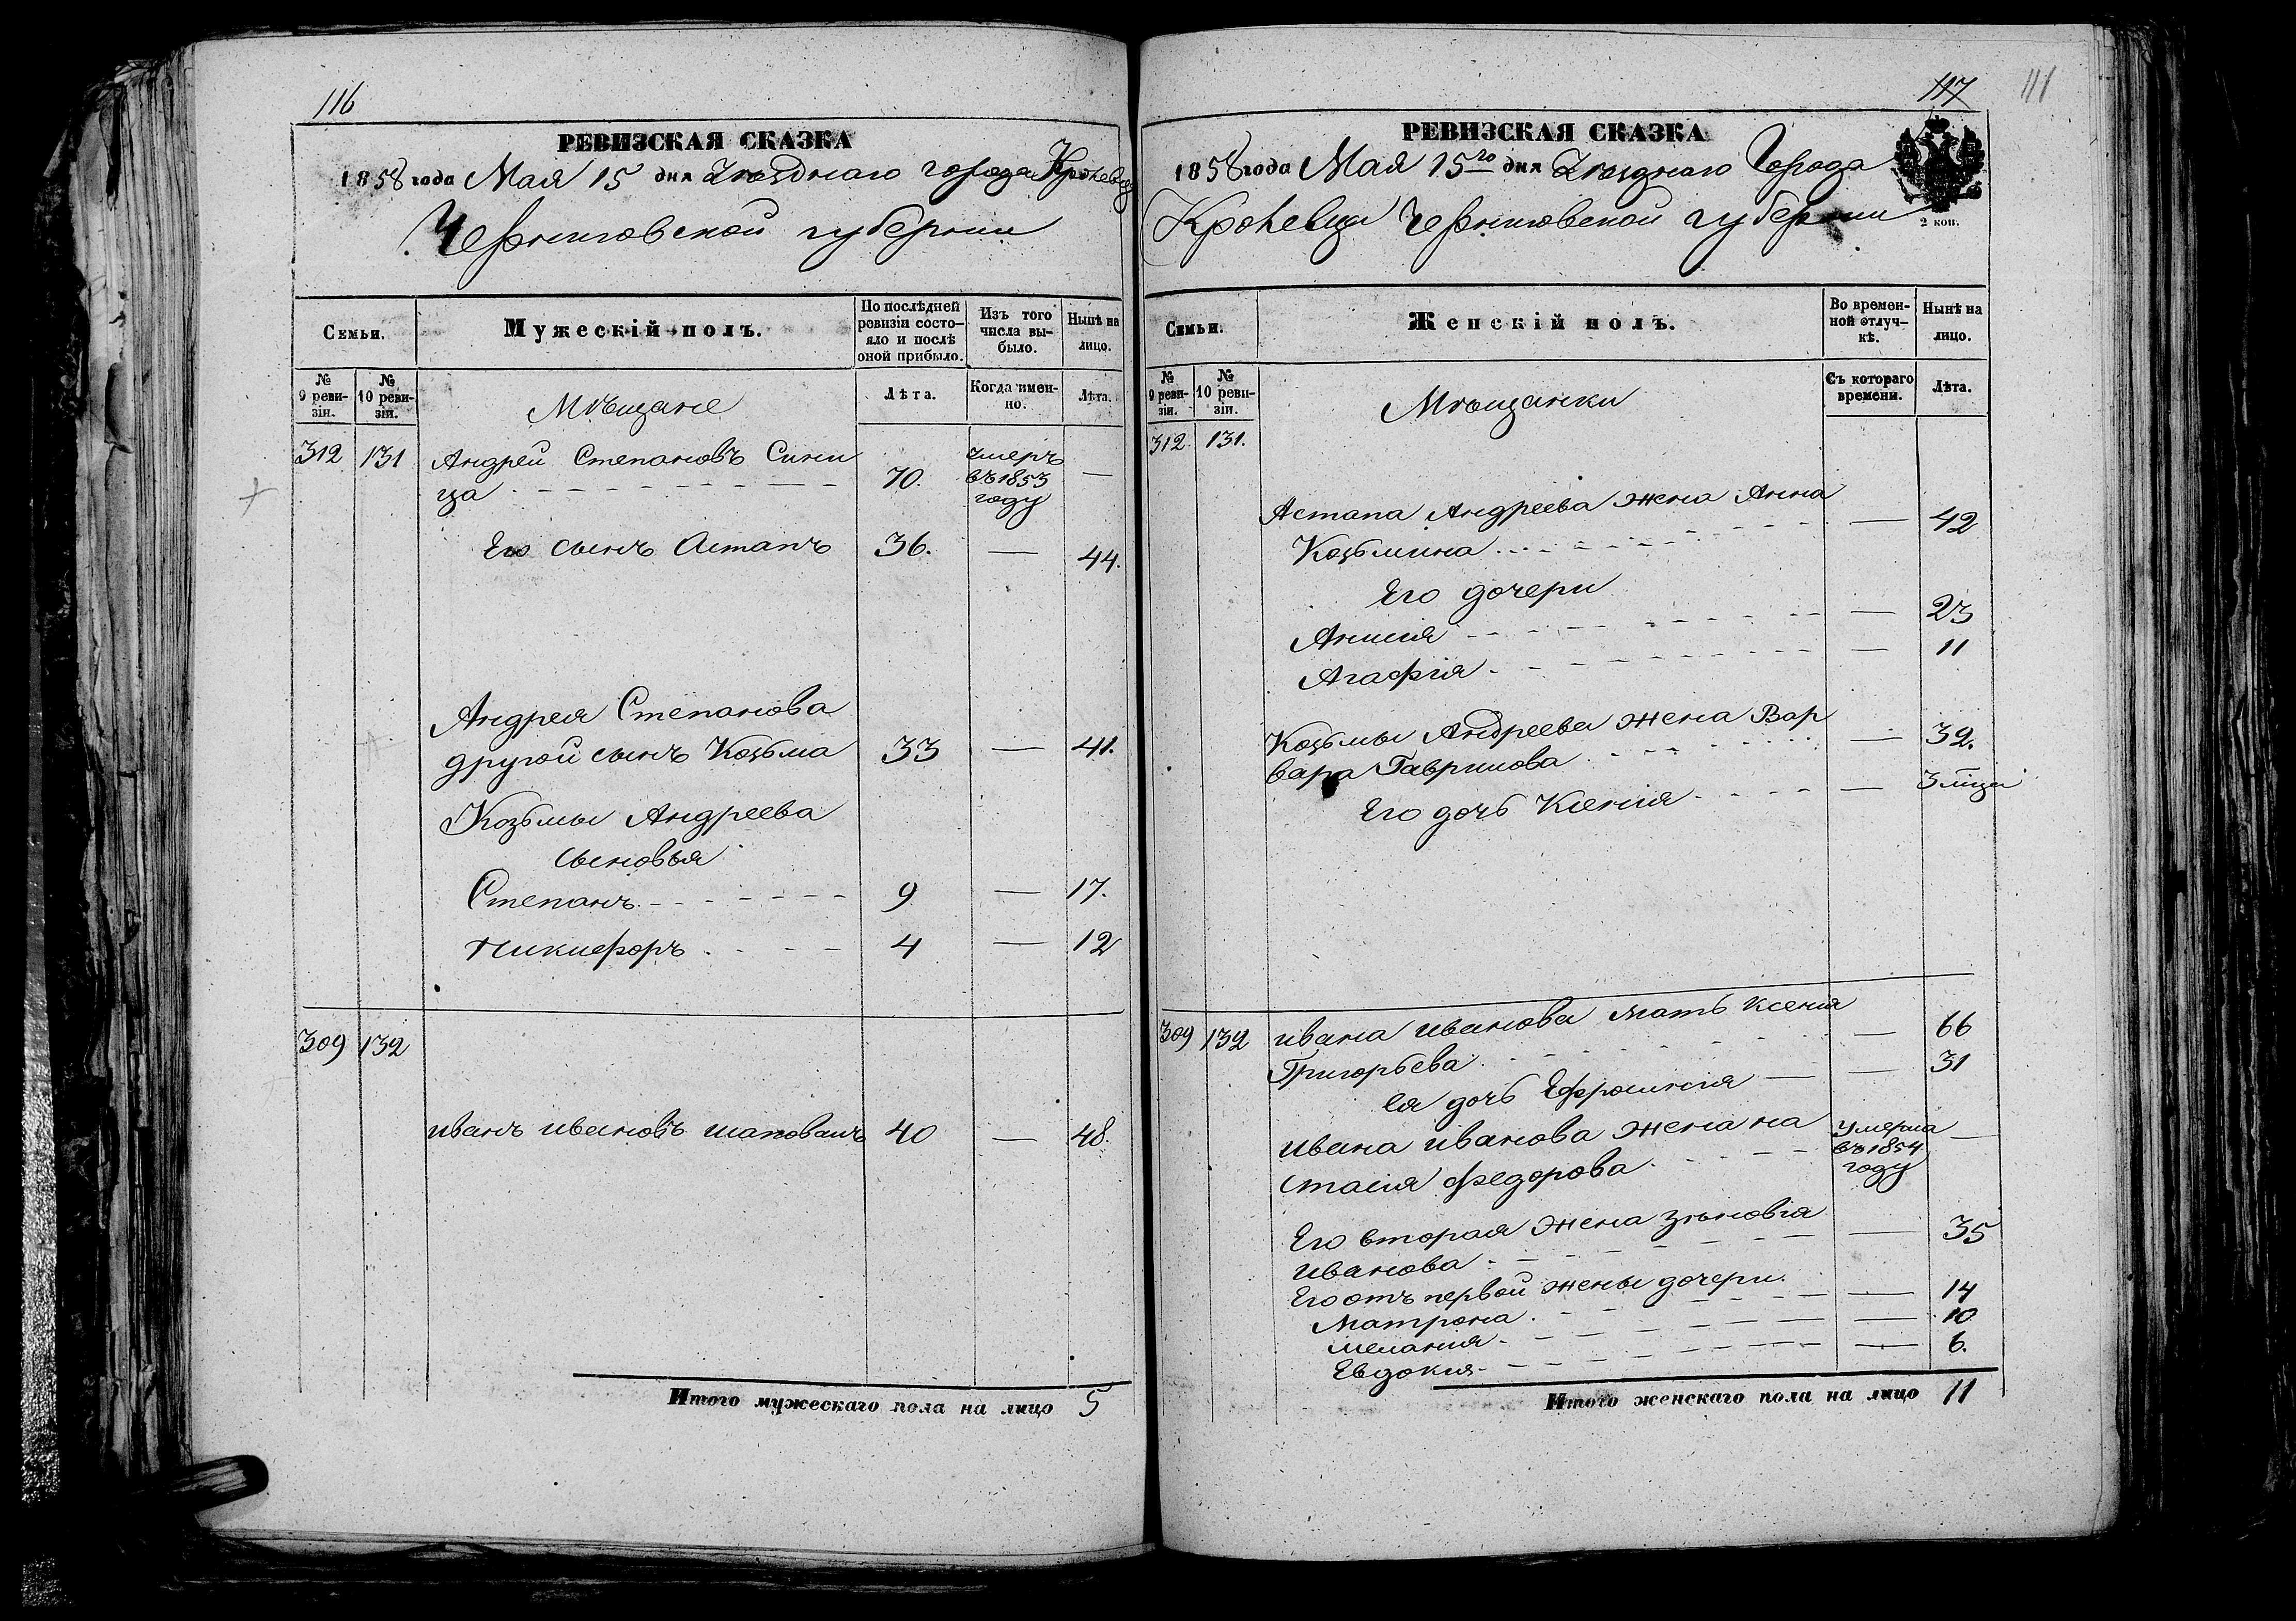 116
РЕВИЗСКАЯ СКАЗКА
1858 года Мая 15 дня Уѣзднаго города Кролевца
Черниговской губернии
Семьи.
Мужескій полъ.
По послѣдней ревизіи состо-
яло и послѣ
оной прибыло.
Изъ того
числа вы-
было.
Нынѣ на
лицо.
№
9 реви-
зіи.
№
10 реви-
зіи.
Мѣщане
Лѣта.
Когда имен-
но.
Лѣта.
312 131 Андрей Степановъ Сини
ца 70. умеръ
въ 1853
году —
Его сынъ Астапъ 36. — 44.
Андрея Степанова
другой сынъ Козьма 33 — 41.
Козьмы Андреева
сыновья
Степанъ 9 — 17.
Никифоръ 4 — 12
309 132
иванъ ивановъ шаповалъ 40 — 48.
Итого мужескаго пола на лицо 5
117 111
РЕВИЗСКАЯ СКАЗКА
1858 года Мая 15го дня Уѣзднаго Города
Кролевца Черниговской губернии
2 коп.
Семьи.
Женскій полъ.
Во времен-
ной отлуч-
кѣ.
Нынѣ на
лицо.
№
9 реви-
зіи.
№
10 реви-
зіи.
Мѣщанки
Съ котораго
времени.
Лѣта.
312. 131.
Астапа Андреева жена Анна
Козьмина — 42
Его дочери
Анисия — 23
Агафия — 11
Козьмы Андреева жена Вар
вара Гаврилова — 32.
Его дочь Ксения — 3 мца
309 132 ивана иванова мать Ксения
Григорьева — 66
Ея дочь Ефросиния — 31
ивана иванова жена На
стасия Федорова умерла
въ 1854
году —
Его вторая жена зѣновия
иванова — 35
Его отъ первой жены дочери
Матрона — 14
мелания — 10
Евдокия — 6.
Итого женскаго пола на лицо 11